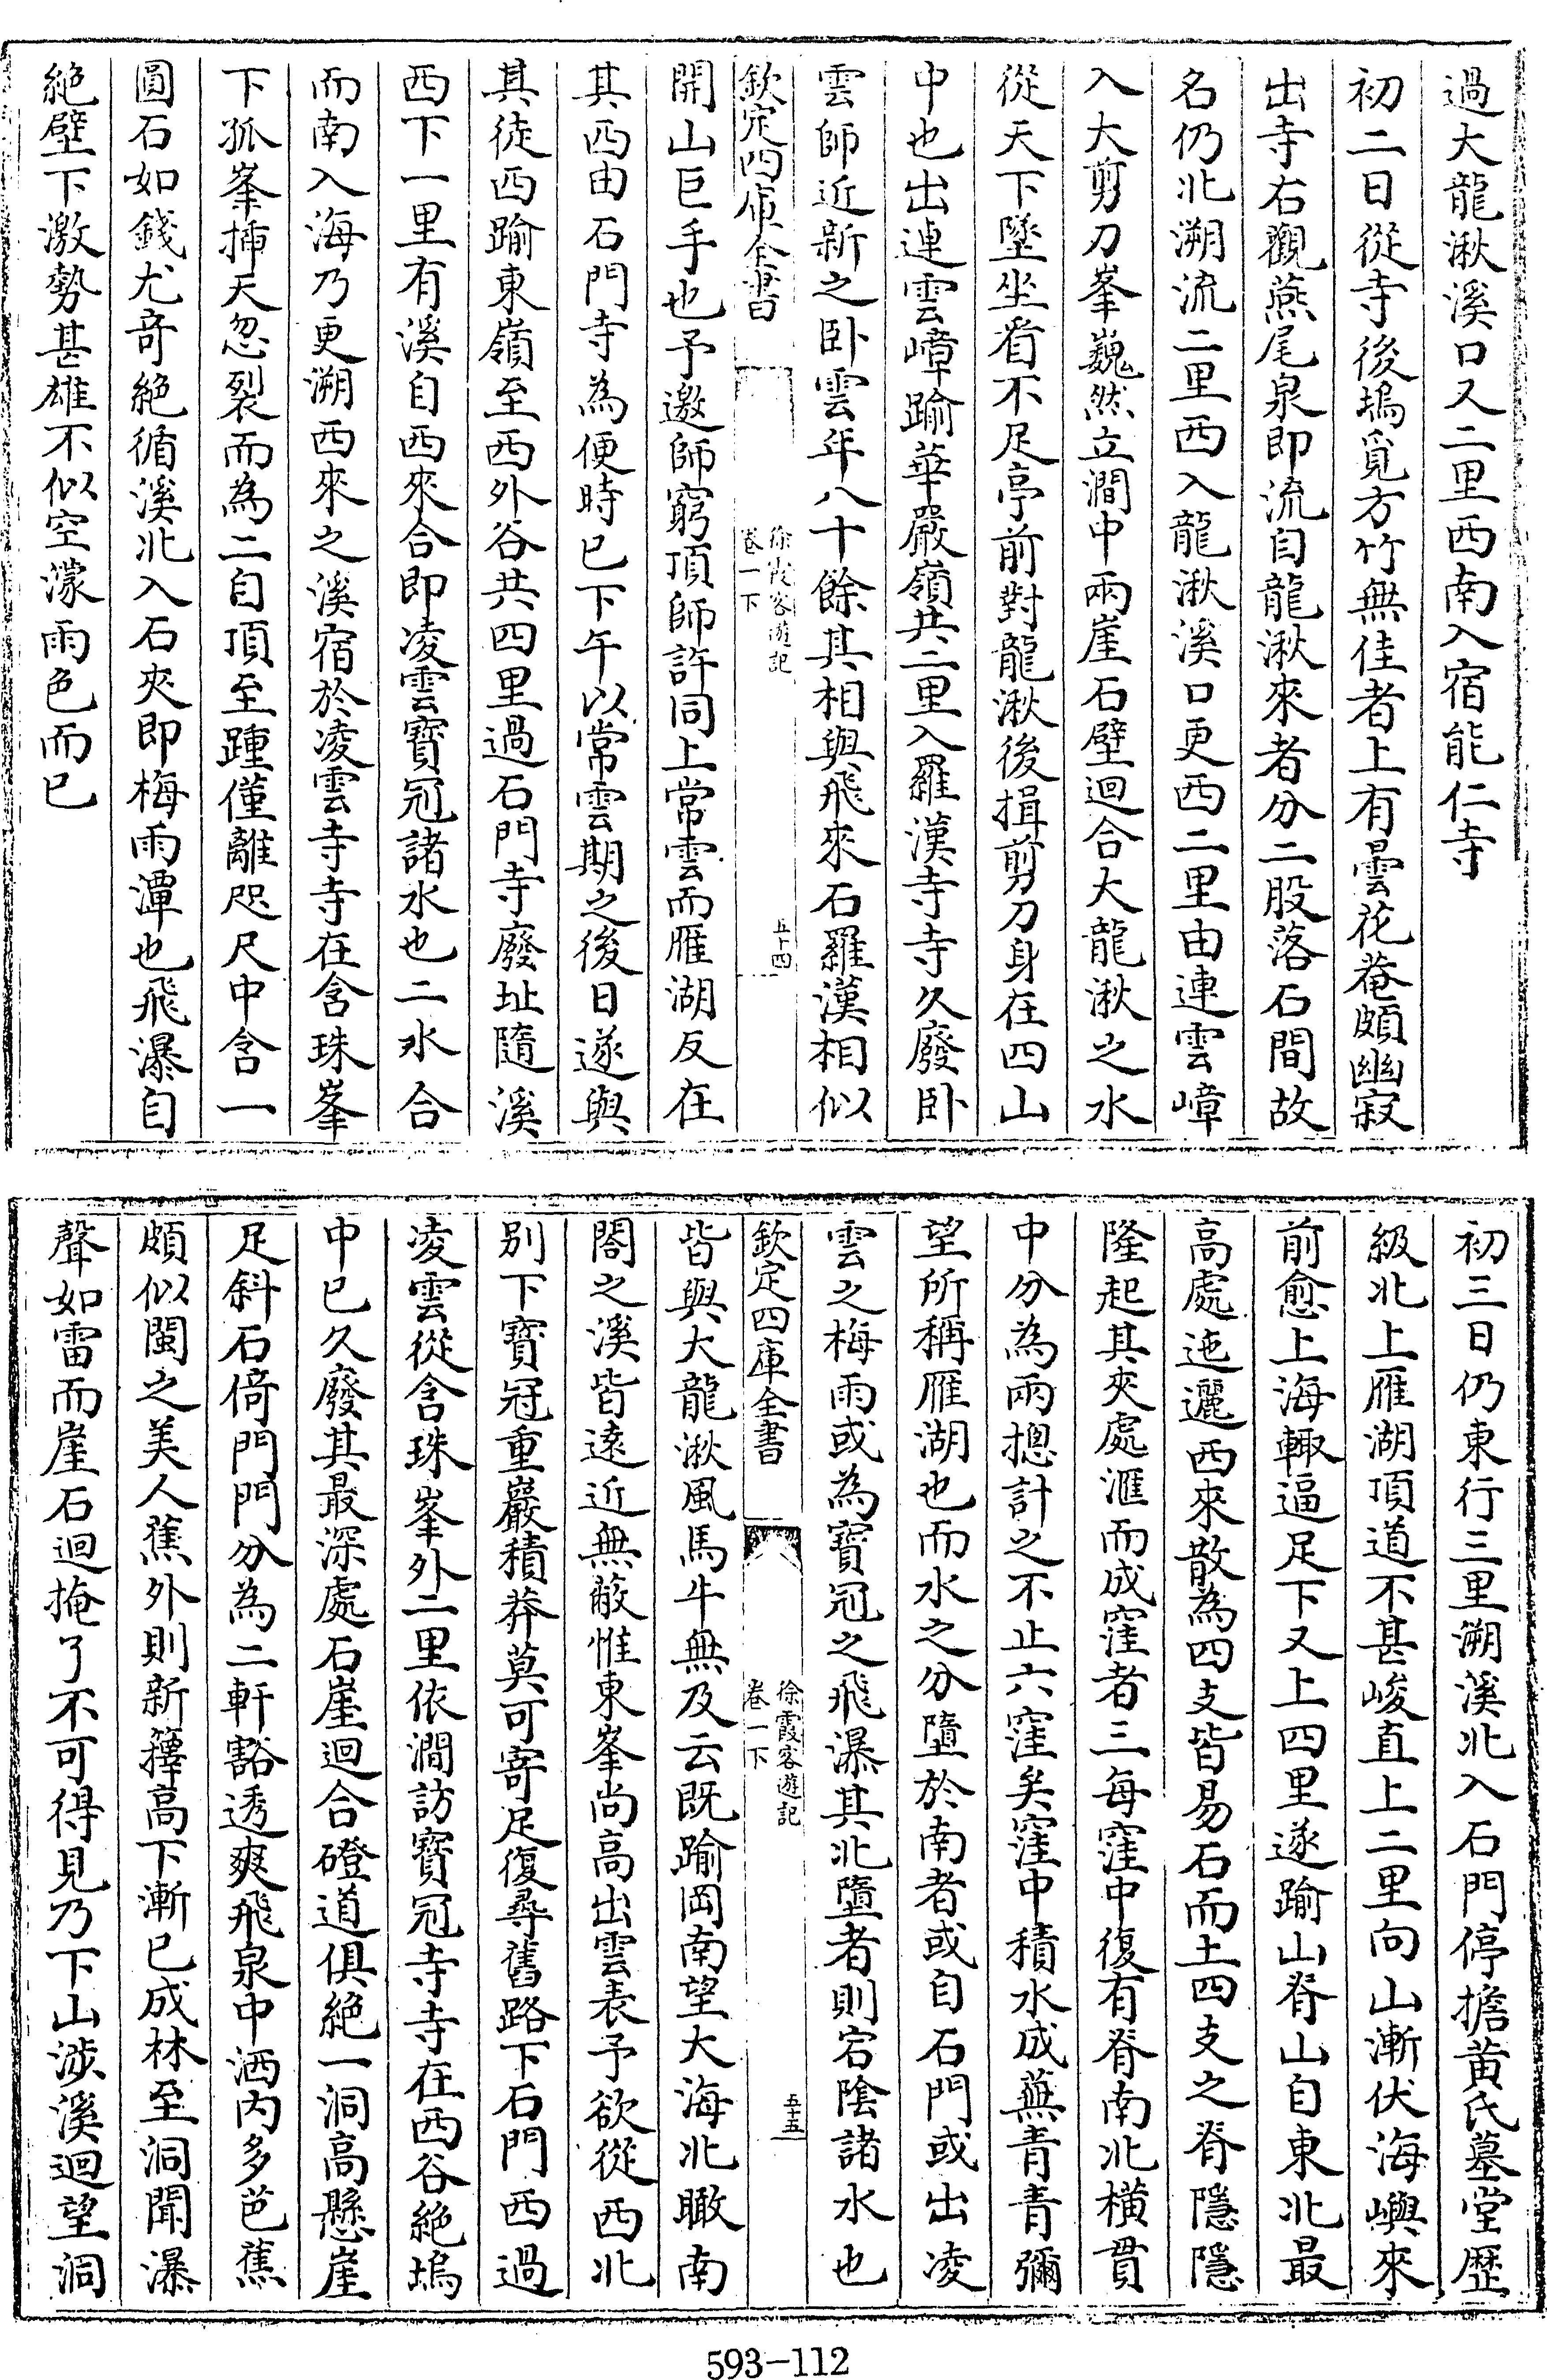 過大龍湫溪口又二里西南入宿能仁寺
初二日從寺後塢覓方竹無佳者上有曇花菴頗幽寂
出寺右觀燕尾泉即流自龍湫來者分二股落石間故
名仍北溯流二里西入龍湫溪口更西二里由連雲嶂
入大剪刀峯巍然立澗中兩崖石壁迴合大龍湫之水
從天下墜坐看不足亭前對龍湫後揖剪刀身在四山
中也出連雲嶂踰華嚴嶺共二里入羅漢寺寺久廢卧
雲師近新之卧雲年八十餘其相與飛來石羅漢相似
欽定四庫全書
徐霞客遊記
卷一下
五十四
開山巨手也予邀師窮頂師許同上常雲而雁湖反在
其西由石門寺為便時已下午以常雲期之後日遂與
其徒西踰東嶺至西外谷共四里過石門寺廢址隨溪
西下一里有溪自西來合即凌雲寶冠諸水也二水合
而南入海乃更溯西來之溪宿於凌雲寺寺在含珠峯
下孤峯揷天忽裂而為二自頂至踵僅離咫尺中含一
圓石如錢尤奇絶循溪北入石夾即梅雨潭也飛瀑自
絶壁下激勢甚雄不似空濛雨色而已
初三日仍東行三里溯溪北入石門停擔黄氏墓堂歷
級北上雁湖頂道不甚峻直上二里向山漸伏海嶼來
前愈上海輙逼足下又上四里遂踰山脊山自東北最
高處迤邐西來散為四支皆易石而土四支之脊隱隱
隆起其夾處滙而成窪者三每窪中復有脊南北横貫
中分為兩摠計之不止六窪矣窪中積水成蕪青青彌
望所稱雁湖也而水之分墮於南者或自石門或出凌
雲之梅雨或為寶冠之飛瀑其北墮者則宕陰諸水也
欽定四庫全書
徐霞客遊記
卷一下
五十五
皆與大龍湫風馬牛無及云既踰岡南望大海北瞰南
閤之溪皆遠近無蔽惟東峯尚高出雲表予欲從西北
别下寶冠重巖積莽莫可寄足復尋舊路下石門西過
凌雲從含珠峯外二里依澗訪寶冠寺寺在西谷絶塢
中已久廢其最深處石崖迴合磴道俱絶一洞高懸崖
足斜石倚門門分為二軒豁透爽飛泉中洒内多芭蕉
頗似閩之美人蕉外則新籜高下漸已成林至洞聞瀑
聲如雷而崖石迴掩了不可得見乃下山涉溪迴望洞
593-112